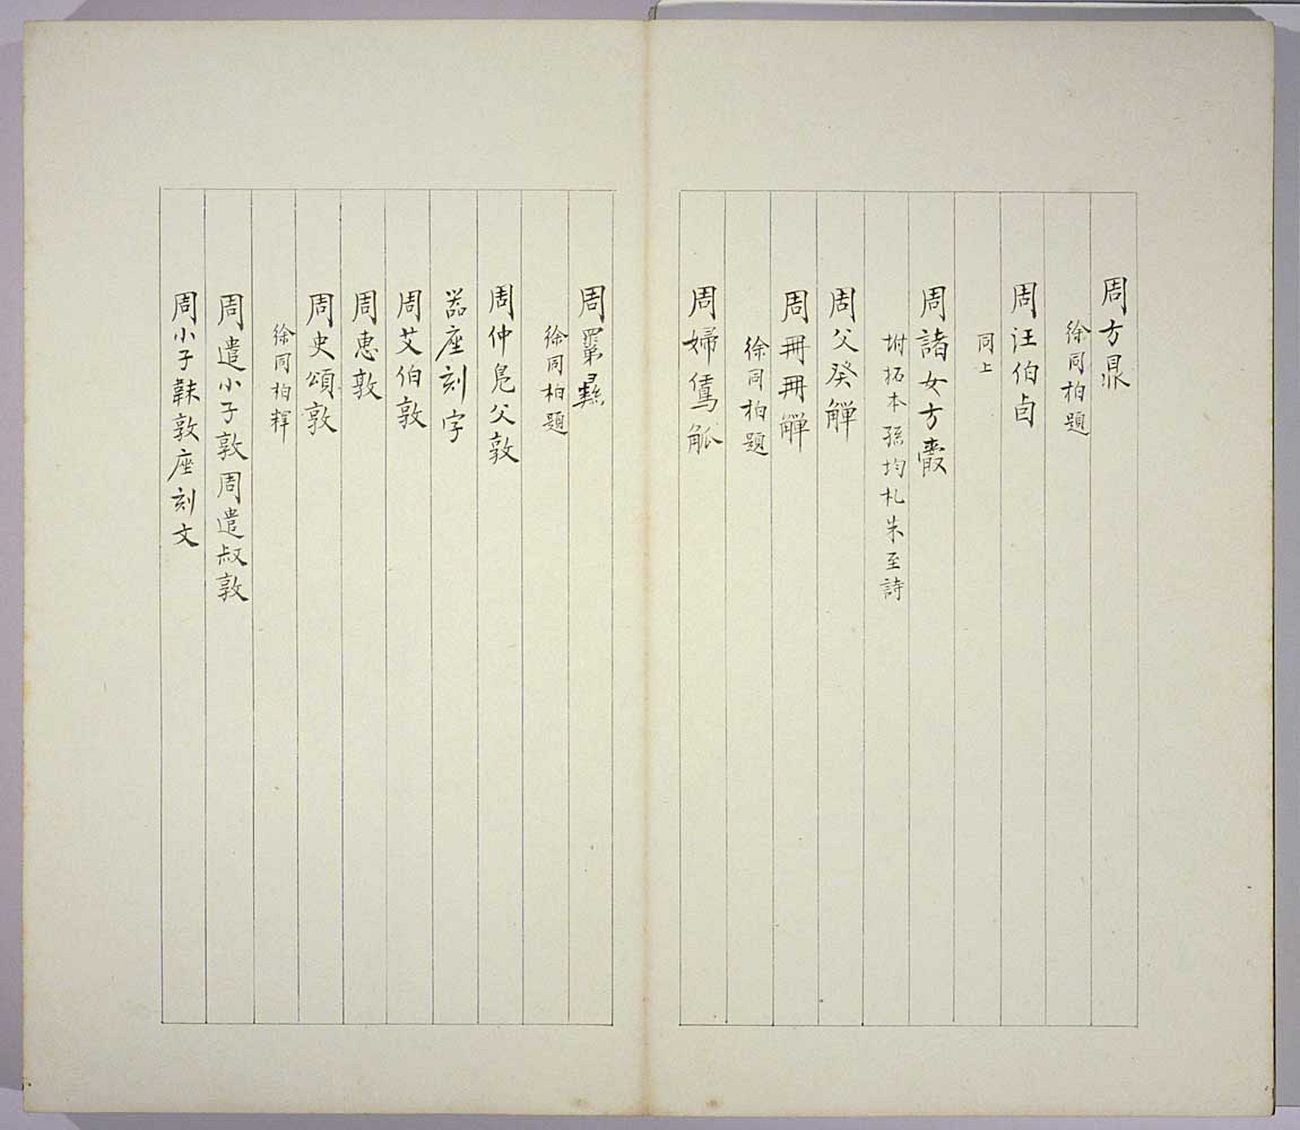 周方鼎
徐同柏題
周汪伯卣
同上
周諸女方
坿拓本孫均札朱至詩
周父癸觶
周冊冊觶
徐同柏題
周婦觚
周彝
徐同柏題
周仲父敦
器座刻字
周艾伯敦
周惠敦
周史頌敦
徐同柏釋
周遣小子敦周遣叔敦
周小子敦座刻文